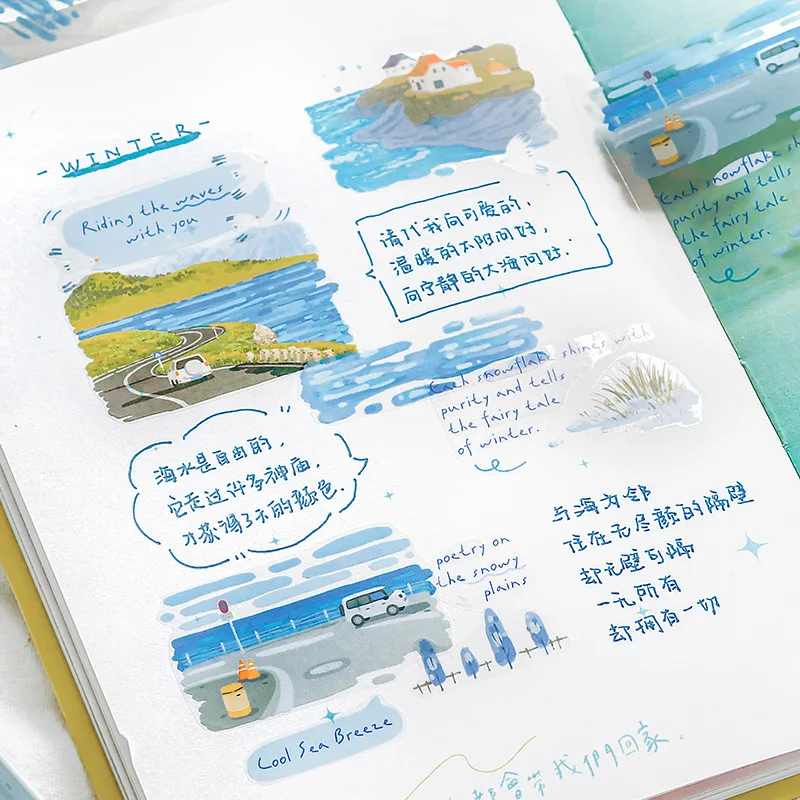 - WINTER -
Riding the waves
with you
请代我向可爱的,
温暖的太阳问好,
向宁静的大海问好.
Each snowflake shines with
purity and tells
the fairy tale
of winter.
海水是自由的,
它走过许多神庙,
才获得了不的颜色.
poetry on
the snowy
plains
与海为邻
住在无尽颜的隔壁
却无壁可隔
一无所有
却拥有一切
Cool Sea Breeze
都會带我們回家.
Each snowflake sh
purity and tells
the fairy tale
of winter.